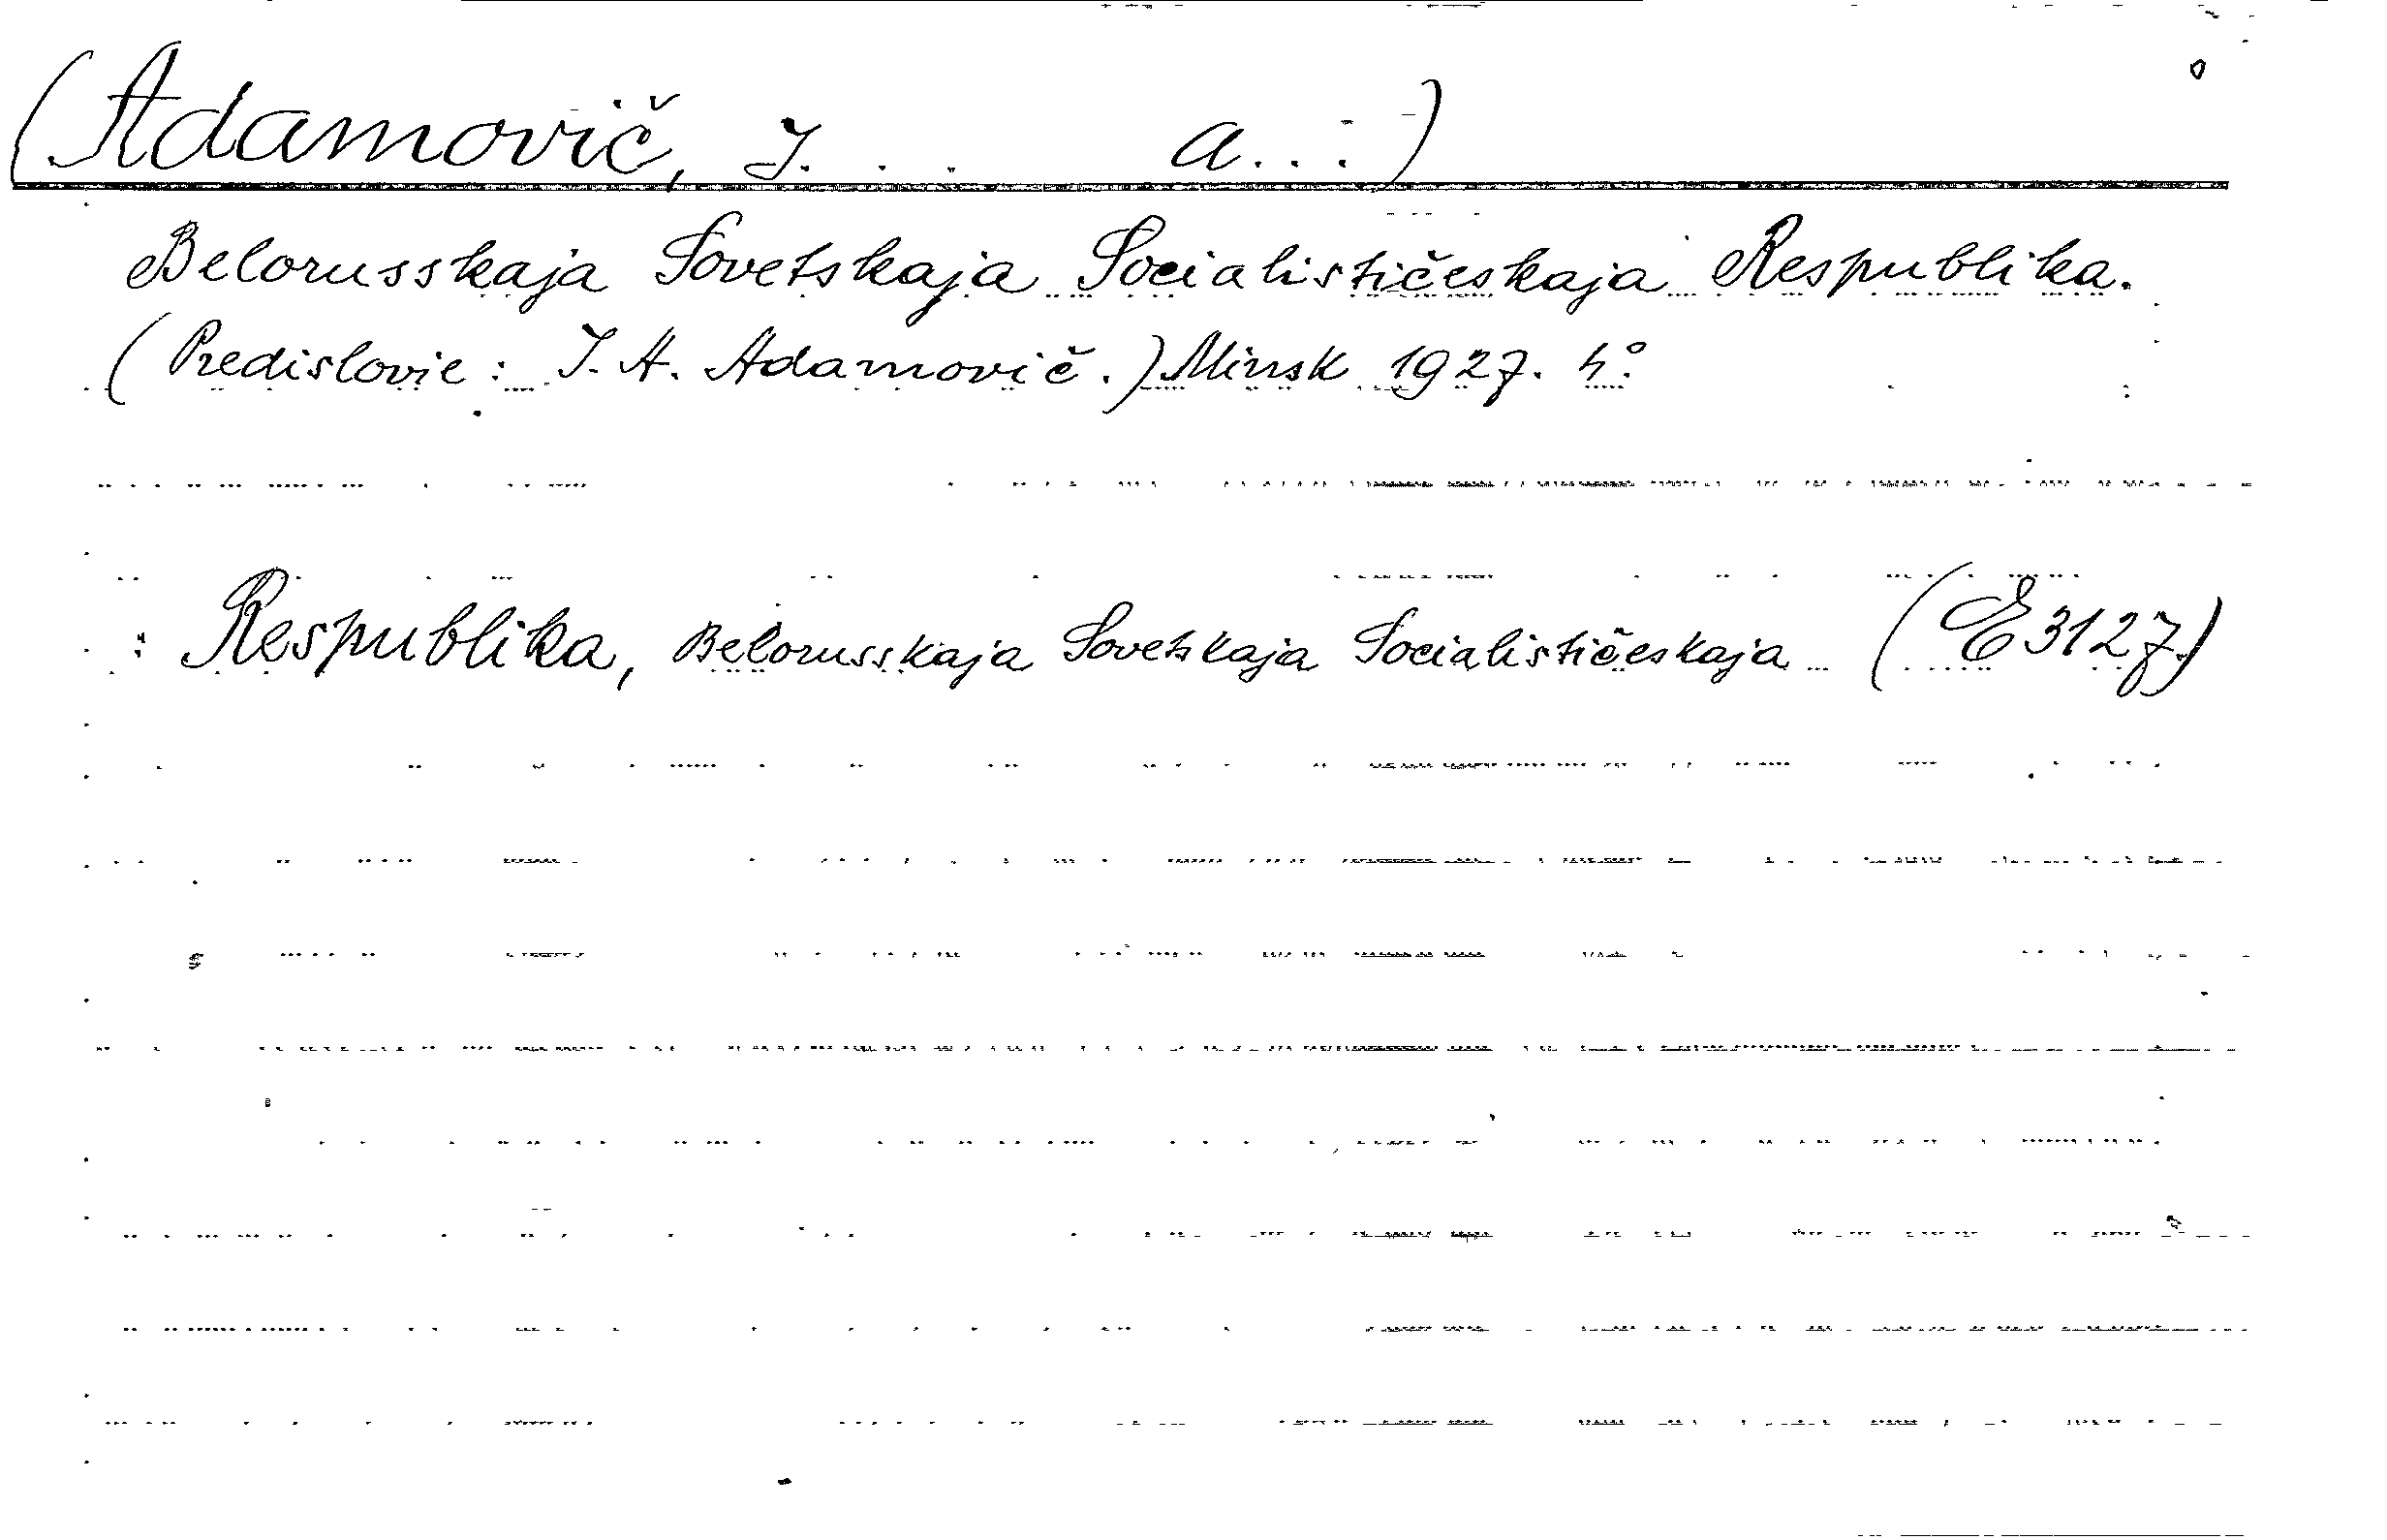 (Adamovič, I. . . A. . .)
Belorusskaja Sovetskaja Socialističeskaja Respublika.
(Predislovie: I. A. Adamovič.) Minsk 1927. 4°.
: Respublika, Belorusskaja Sovetskaja Socialističeskaja (E 3127)